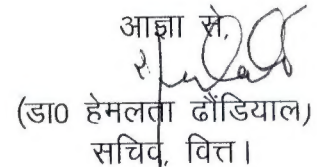 आज्ञा से,
(डा0 हेमलता ढौंडियाल)
सचिव, वित्त।